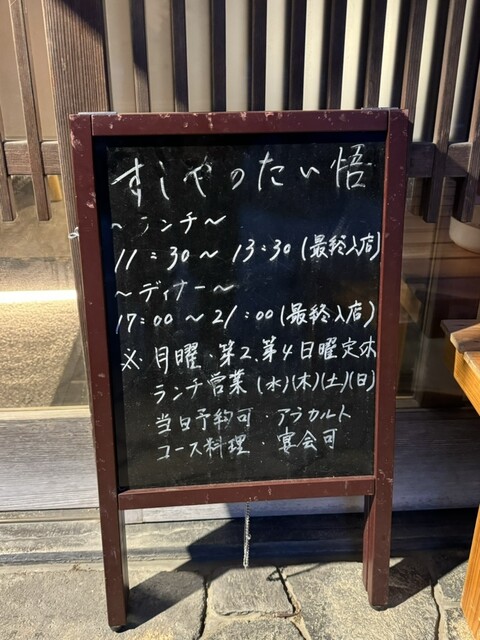 すしやのたい悟
～ランチ～
11:30～13:30(最終入店)
～ディナー～
17:00～21:00(最終入店)
※月曜・第2、第4日曜定休
ランチ営業(水)(木)(土)(日)
・当日予約可・アラカルト
コース料理・宴会可